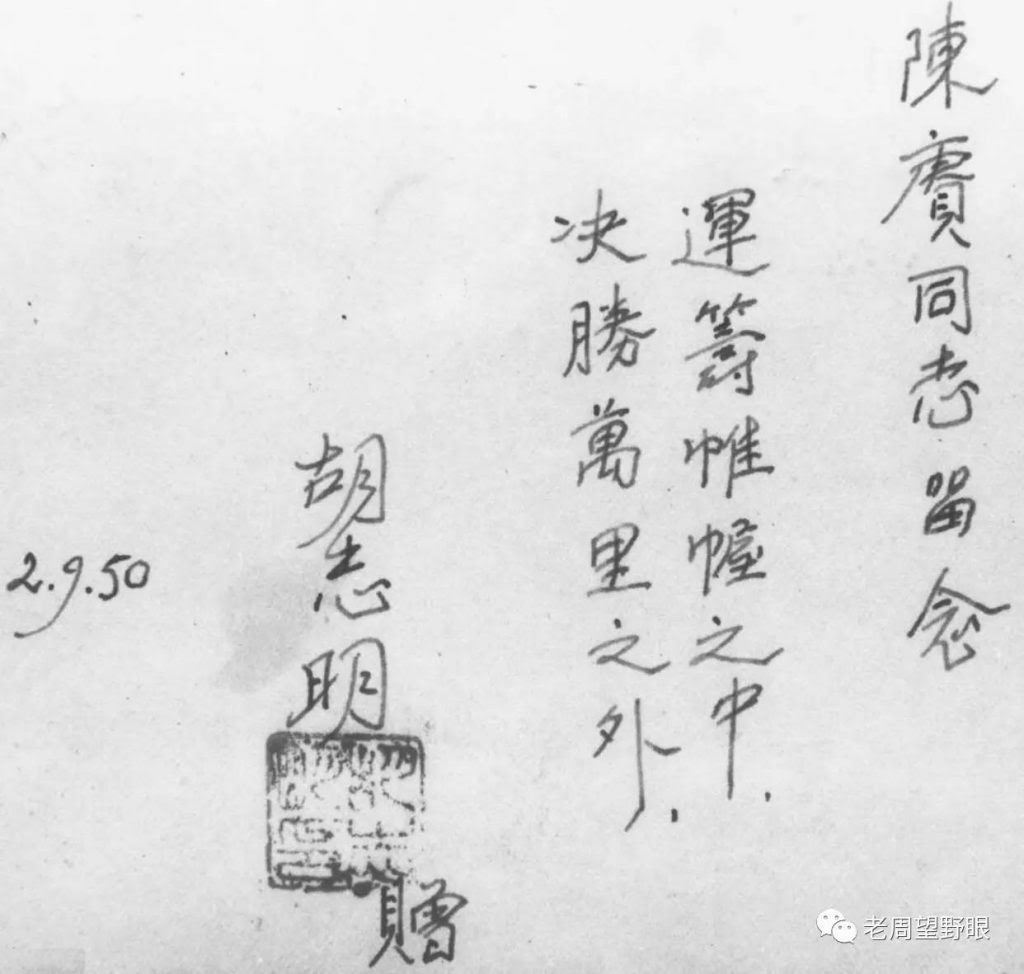 陳賡同志留念
運籌帷幄之中.
决勝萬里之外.
胡志明
贈
2.9.50
老周望野眼